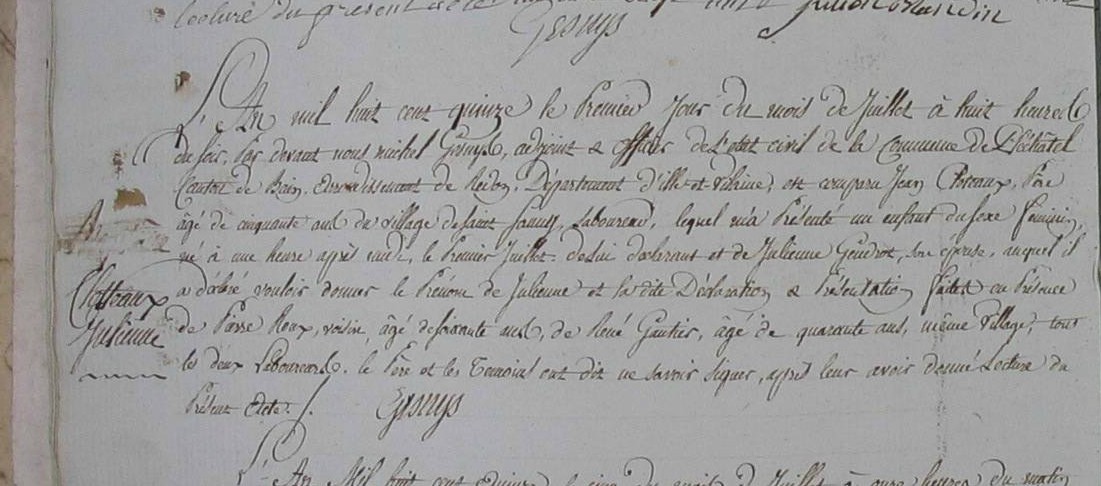 lecture du présent acte
Gesnys
L'An mil huit cent quinze le Premier Jour du mois de Juillet à huit heures
du soir, Par devant nous michel Gesnys, adjoint & officier de l'etat civil de la Commune de Pléchatel
Canton de Bain, Arrondissement de Redon, Département d'ille-et-vilaine, est comparu Jean Chotteaux, Père
âgé de cinquante ans du village de saint sauny, Laboureur, lequel m'a Présenté un enfant du sexe féminin
né à une heure après midi, le Premier Juillet de lui déclarant et de Julienne Gendrot, son epouse, auquel il
a déclaré vouloir donner le Prénom de Julienne et la dite Déclaration & Présentation faites en Présence
Chotteaux
Julienne
de Pierre Roux, voisin, âgé de soixante ans, de René Gautier, âgé de quarante ans, même village, tous
les deux Laboureurs. le Père et les Temoins ont dit ne savoir signer, après leur avoir donné Lecture du
Présent Acte. Gesnys
L'An Mil huit cent quinze le cinq du mois de Juillet à onze heures du matin